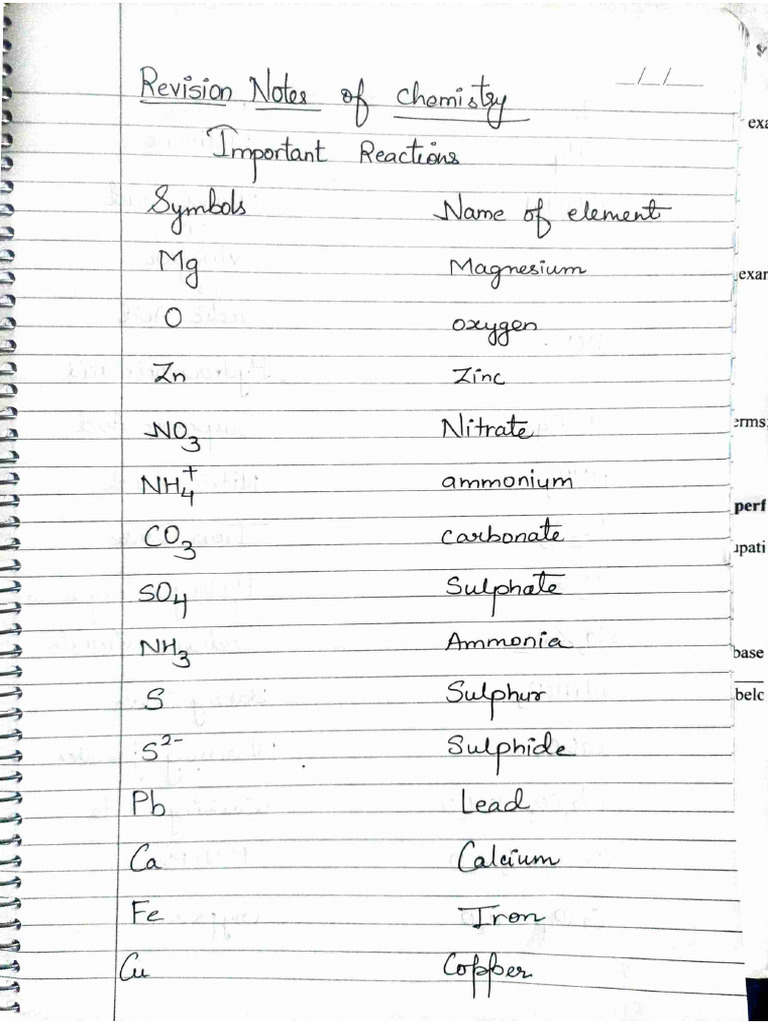 Revision Notes of Chemistry
Important Reactions
Symbols Name of element
Mg Magnesium
O oxygen
Zn Zinc
NO₃ Nitrate
NH₄⁺ ammonium
CO₃ carbonate
SO₄ Sulphate
NH₃ Ammonia
S Sulphur
S²⁻ Sulphide
Pb Lead
Ca Calcium
Fe Iron
Cu Copper
exa
exar
erms;
perf
upati
base
belc